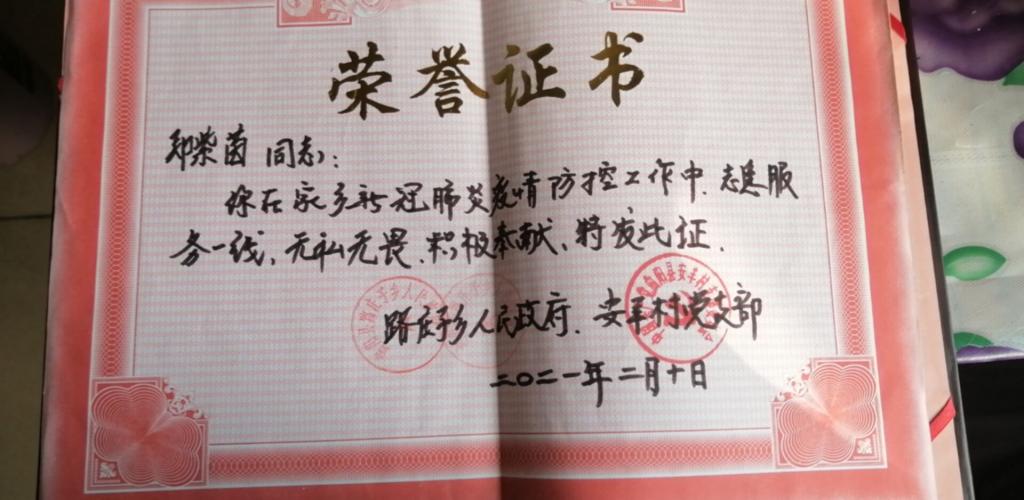 荣誉证书
邓紫茵 同志:
你在家乡新冠肺炎疫情防控工作中,志愿服
务一线,无私无畏,积极奉献,特发此证.
路庄子乡人民政府.安丰村党支部
二〇二一年二月十日